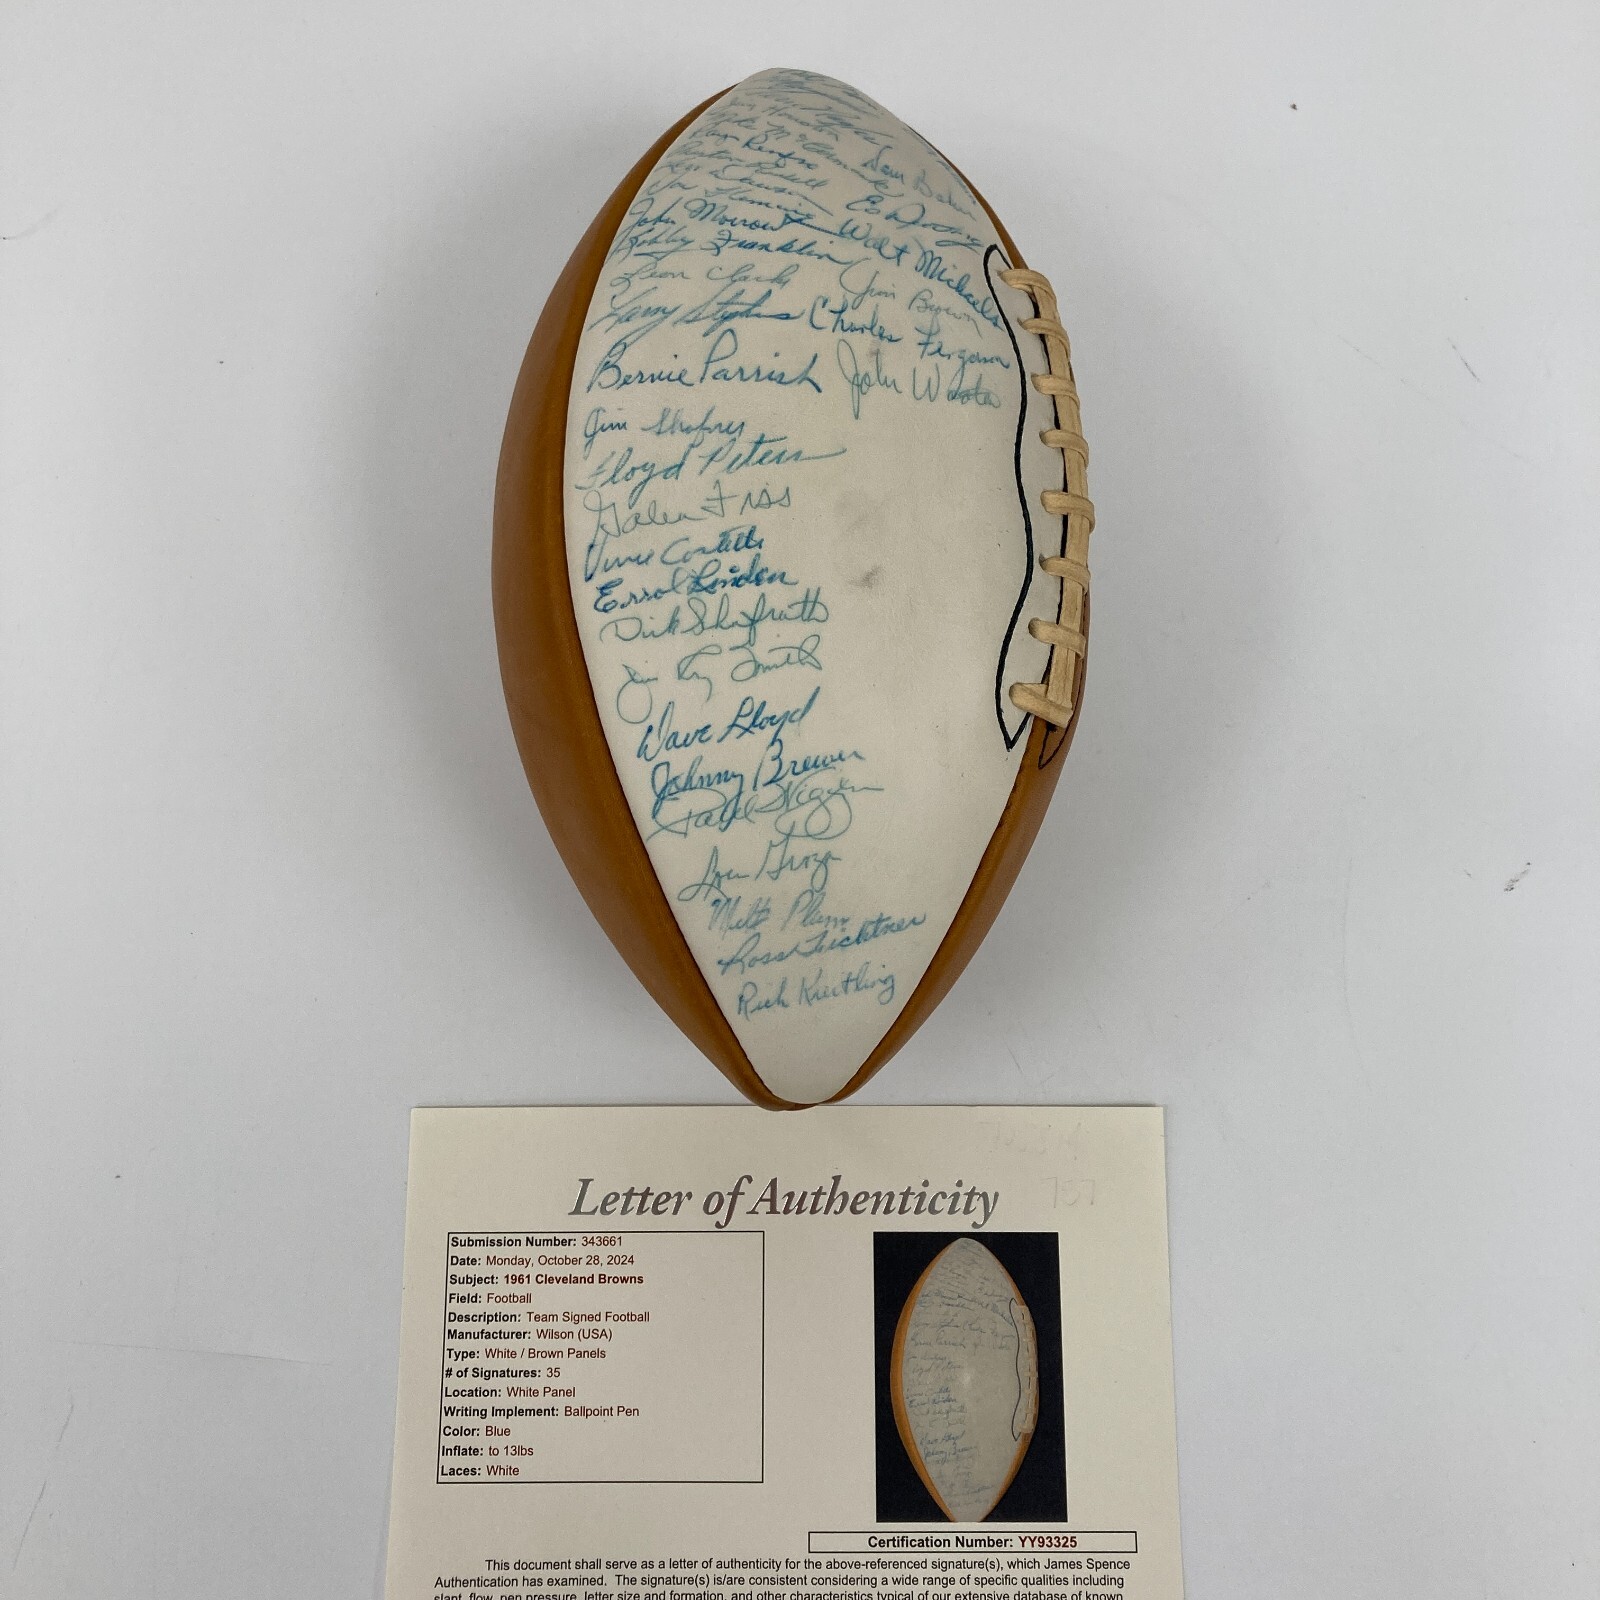 Jim Houston
Mike McCormack Sam Baker
Ray Renfro
Preston Powell
Les Dawson Ed
Don Fleming
John Morrow Walt Michaels
Bobby Franklin Jim Brown
Leon Clarke
Larry Stephens Charles Ferguson
Bernie Parrish John Wooten
Jim Shofner
Floyd Peters
Galen Fiss
Vince Costello
Errol Linden
Dick Shafrath
Jim Ray Smith
Dave Lloyd
Johnny Brewer
Paul Wiggin
Lou Groza
Milt Plum
Ross Fichtner
Rich Kreitling
Letter of Authenticity
757
Submission Number: 343661
Date: Monday, October 28, 2024
Subject: 1961 Cleveland Browns
Field: Football
Description: Team Signed Football
Manufacturer: Wilson (USA)
Type: White / Brown Panels
# of Signatures: 35
Location: White Panel
Writing Implement: Ballpoint Pen
Color: Blue
Inflate: to 13lbs
Laces: White
Certification Number: YY93325
This document shall serve as a letter of authenticity for the above-referenced signature(s), which James Spence
Authentication has examined. The signature(s) is/are consistent considering a wide range of specific qualities including
slant, flow, pen pressure, letter size and formation, and other characteristics typical of our extensive database of known